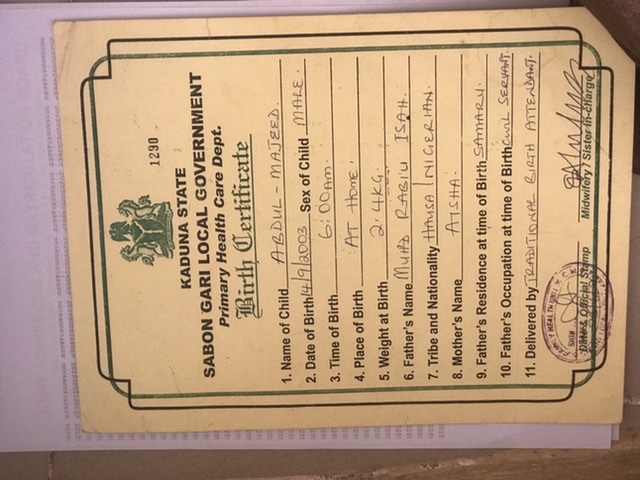 1290
KADUNA STATE
SABON GARI LOCAL GOVERNMENT
Primary Health Care Dept.
Birth Certificate
1. Name of Child ABDUL-MAJEED.
2. Date of Birth 14/9/2003 Sex of Child MALE.
3. Time of Birth 6:00am.
4. Place of Birth AT HOME.
5. Weight at Birth 2.4KG.
6. Father's Name MUHD RABI'U ISAH.
7. Tribe and Nationality HAUSA / NIGERIAN.
8. Mother's Name AISHA.
9. Father's Residence at time of Birth SAMARU.
10. Father's Occupation at time of Birth CIVIL SERVANT.
11. Delivered by TRADITIONAL BIRTH ATTENDANT.
Date & Official Stamp Midwifery / Sister in-charge